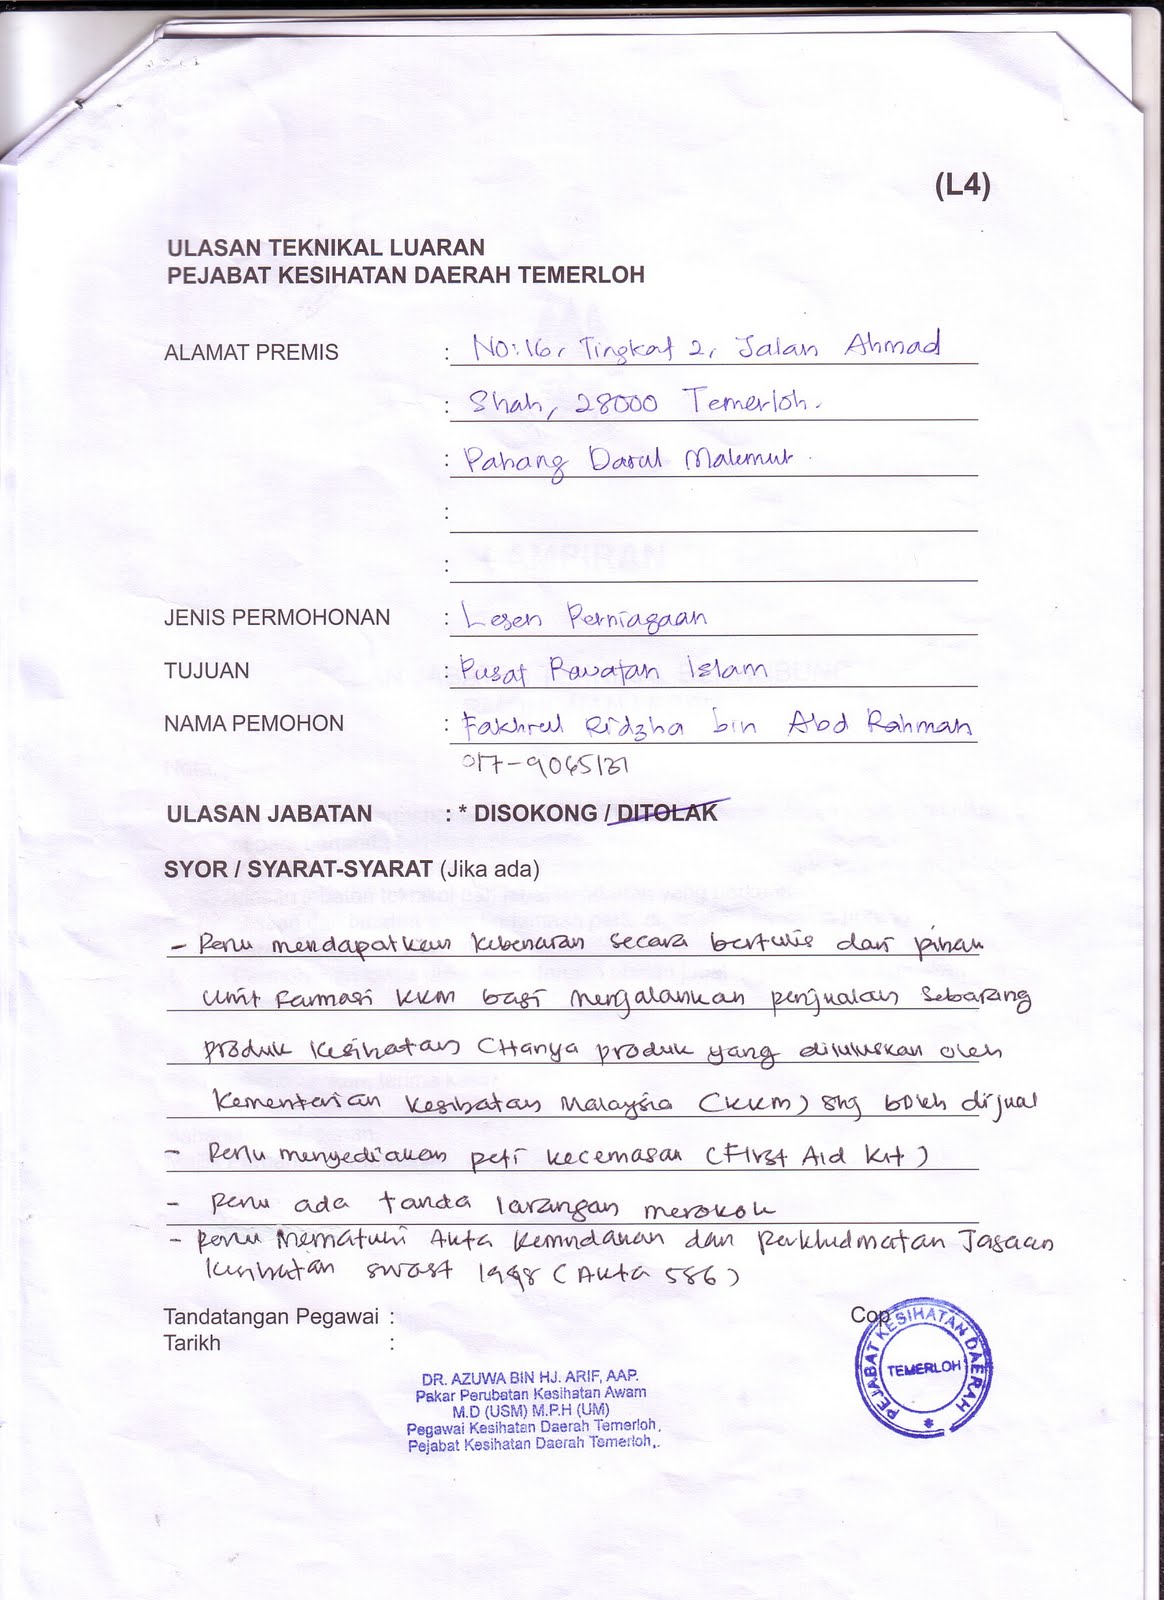 (L4)
ULASAN TEKNIKAL LUARAN
PEJABAT KESIHATAN DAERAH TEMERLOH
ALAMAT PREMIS : No:16, Tingkat 2, Jalan Ahmad
: Shah, 28000 Temerloh.
: Pahang Darul Makmur.
:
:
JENIS PERMOHONAN : Lesen Perniagaan
TUJUAN : Pusat Rawatan Islam
NAMA PEMOHON : Fakhrul Ridzha bin Abd Rahman
017-9065131
ULASAN JABATAN : * DISOKONG / DITOLAK
SYOR / SYARAT-SYARAT (Jika ada)
- Perlu mendapatkan kebenaran secara bertulis dari pihak
unit Farmasi KKM bagi menjalankan penjualan sebarang
produk kesihatan (Hanya produk yang diluluskan oleh
Kementerian Kesihatan Malaysia (KKM) shj boleh dijual
- Perlu menyediakan peti kecemasan (First Aid Kit)
- Perlu ada tanda larangan merokok
- Perlu Mematuhi Akta Kemudahan dan Perkhidmatan Jagaan
Kesihatan swast 1998 (Akta 586)
Tandatangan Pegawai :
Cop
Tarikh :
PEJABAT KESIHATAN DAERAH
TEMERLOH
*
DR. AZUWA BIN HJ. ARIF, AAP.
Pakar Perubatan Kesihatan Awam
M.D (USM) M.P.H (UM)
Pegawai Kesihatan Daerah Temerloh,
Pejabat Kesihatan Daerah Temerloh,.